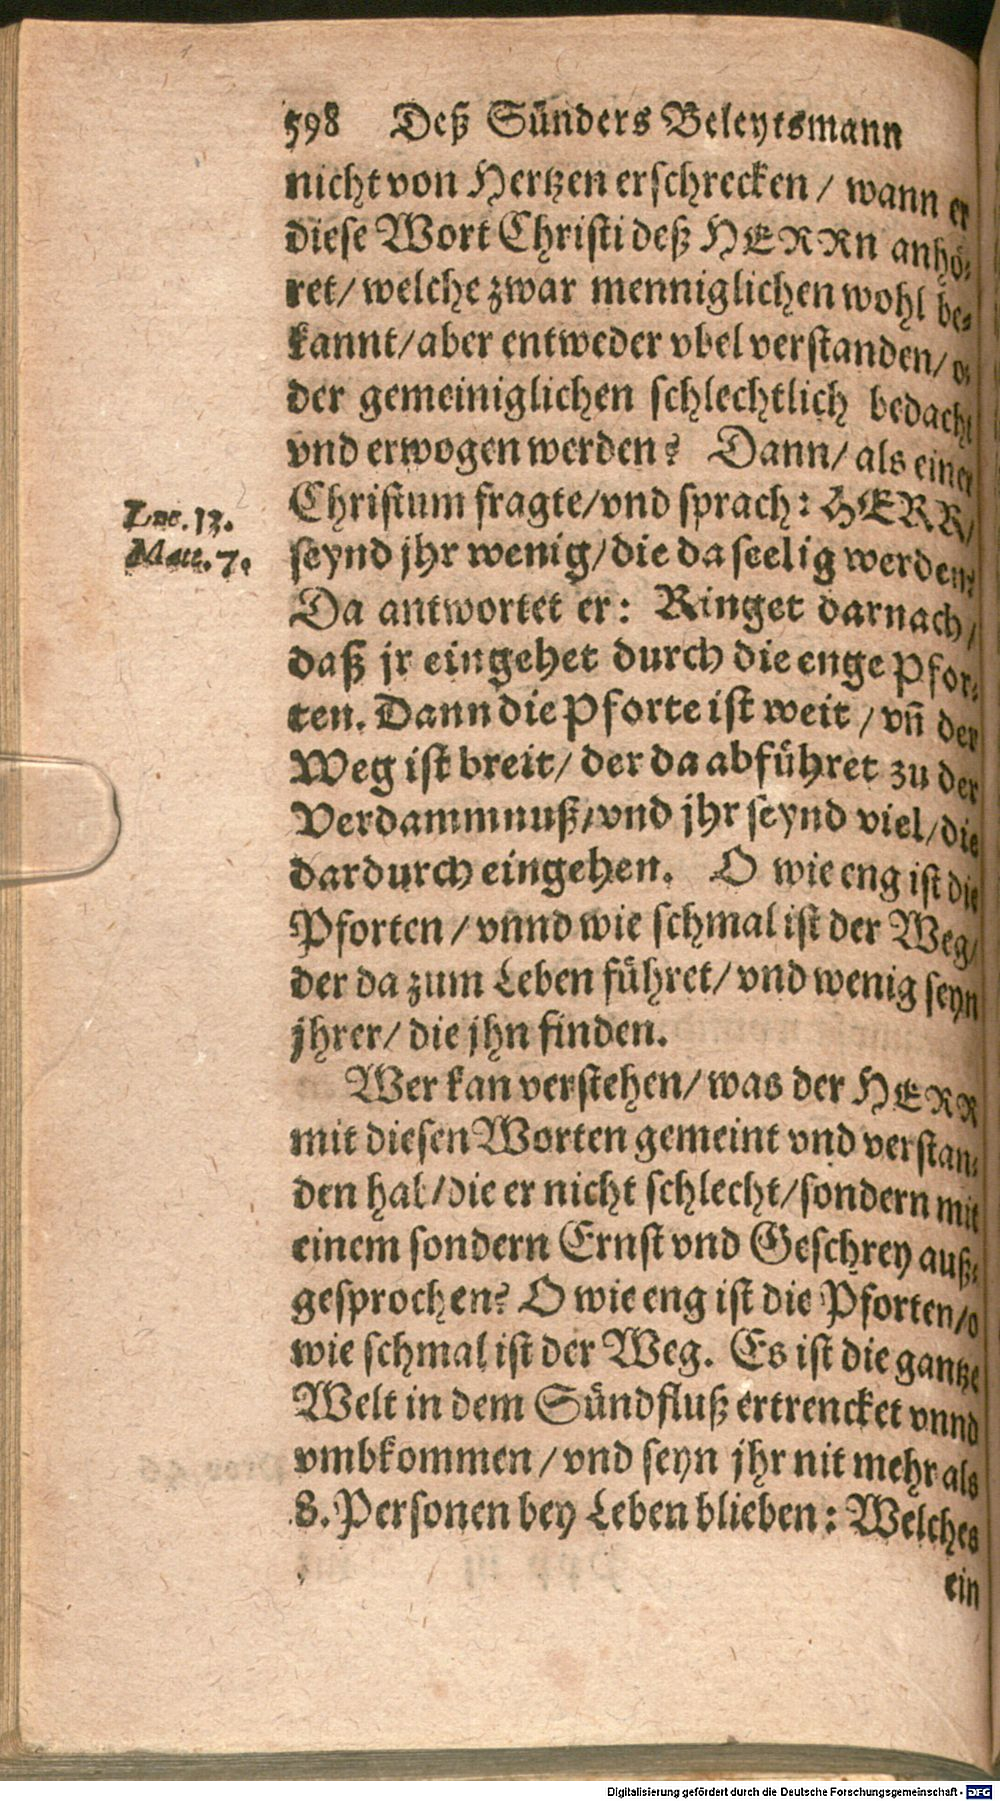 598 Deß Sünders Beleytsmann
nicht von Hertzen erschrecken / wann er
diese Wort Christi deß HERRn anhö-
ret/ welche zwar menniglichen wohl be-
kannt/ aber entweder vbel verstanden/ o-
der gemeiniglichen schlechtlich bedacht
vnd erwogen werden? Dann/ als einer
Christum fragte/ vnd sprach: HERR/
Luc. 13.
seynd jhr wenig/ die da seelig werden?
Matt. 7.
Da antwortet er: Ringet darnach/
daß jr eingehet durch die enge Pfor-
ten. Dann die Pforte ist weit / vñ der
Weg ist breit/ der da abführet zu der
Verdammnuß/ vnd jhr seynd viel/ die
dardurch eingehen. O wie eng ist die
Pforten / vnnd wie schmal ist der Weg/
der da zum Leben führet/ vnd wenig seyn
jhrer/ die jhn finden.
Wer kan verstehen/ was der HERR
mit diesen Worten gemeint vnd verstan-
den hab/ die er nicht schlecht/ sondern mit
einem sondern Ernst vnd Geschrey auß-
gesprochen? O wie eng ist die Pforten/ o
wie schmal ist der Weg. Es ist die gantze
Welt in dem Sündfluß ertrencket vnnd
vmbkommen / vnd seyn jhr nit mehr als
8. Personen bey Leben blieben: Welches
ein
Digitalisierung gefördert durch die Deutsche Forschungsgemeinschaft - DFG